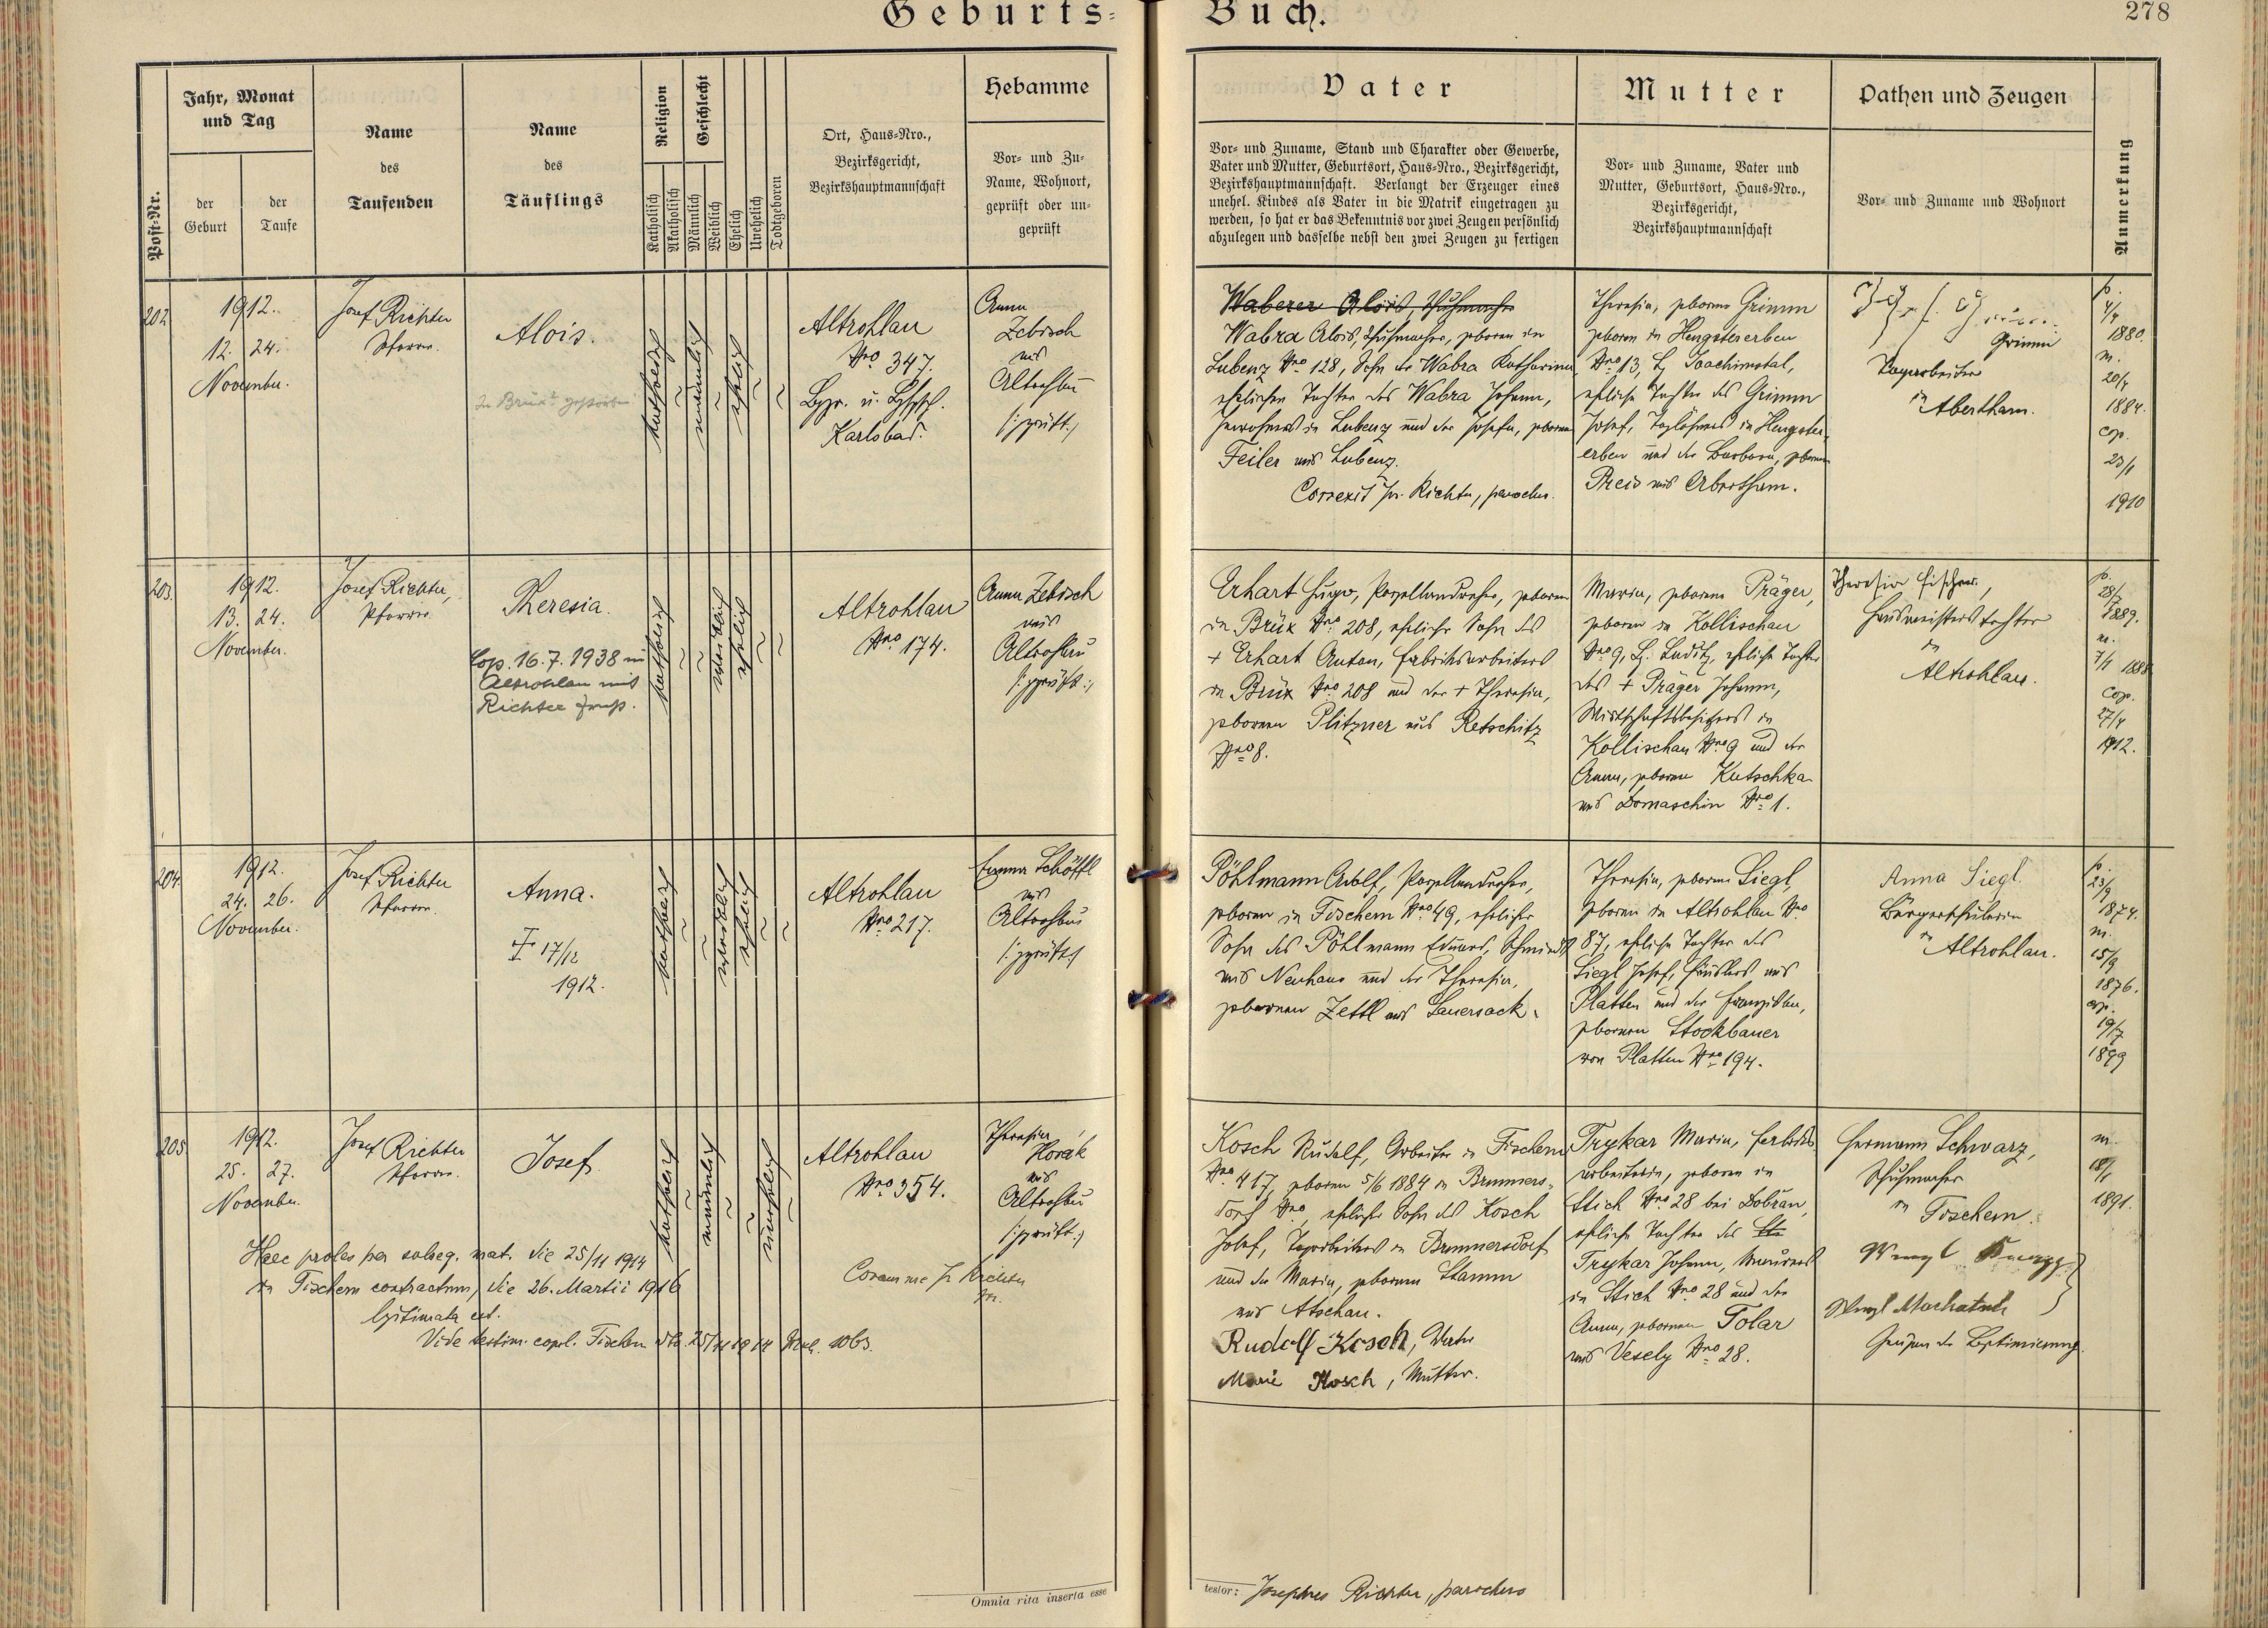 Geburts-Buch.
278
Post-Nr.
Jahr, Monat
und Tag
der
Geburt
der
Taufe
Name
des
Taufenden
Name
des
Täuflings
Religion
Katholisch
Akatholisch
Geschlecht
Männlich
Weiblich
Ehelich
Unehelich
Todtgeboren
Ort, Haus-Nro.,
Bezirksgericht,
Bezirkshauptmannschaft
Hebamme
Vor- und Zu-
Name, Wohnort,
geprüft oder un-
geprüft
Vater
Vor- und Zuname, Stand und Charakter oder Gewerbe,
Vater und Mutter, Geburtsort, Haus-Nro., Bezirksgericht,
Bezirkshauptmannschaft. Verlangt der Erzeuger eines
unehel. Kindes als Vater in die Matrik eingetragen zu
werden, so hat er das Bekenntnis vor zwei Zeugen persönlich
abzulegen und dasselbe nebst den zwei Zeugen zu fertigen
Mutter
Vor- und Zuname, Vater und
Mutter, Geburtsort, Haus-Nro.,
Bezirksgericht,
Bezirkshauptmannschaft
Pathen und Zeugen
Vor- und Zuname und Wohnort
Anmerkung
202
1912.
12. 24.
November.
Josef Richter
Pfarrer.
Alois.
In Brüx gestorben
katholisch
männlich
ehelich
Altrohlau
Nro 347.
Bzg. u. Bhpsch.
Karlsbad.
Anna
Lebisch
aus
Altrohlau
/:geprüft:/
Waberer Alois, Schuhmacher
Wabra Alois, Schuhmacher, geboren in
Lubenz Nro 128, Sohn der Wabra Katharina,
ehelichen Tochter des Wabra Johann,
Inwohners in Lubenz und der Josefa, geborne
Feiler aus Lubenz.
Correxit Jos. Richter, parochus.
Theresia, geborne Grimm
geboren in Hengstererben
Nro 13, Bz. Joachimstal,
eheliche Tochter des Grimm
Josef, Taglöhners in Hengster-
erben und der Barbara, geborne
Preis aus Abertham.
Grimm
Tagarbeiter
in Abertham.
p.
4/4
1880.
m.
20/4
1884.
cop.
23/1
1910
203.
1912.
13. 24.
November.
Josef Richter,
Pfarrer
Theresia.
Cop. 16.7.1938 in
Altrohlau mit
Richter Ernst.
katholisch
weiblich
ehelich
Altrohlau
Nro 174.
Anna Lebisch
aus
Altrohlau
/:geprüft:/
Erhart Hugo, Porzellandreher, geboren
in Brüx Nro 208, ehelicher Sohn des
+ Erhart Anton, Fabriksarbeiters
in Brüx Nro 208 und der + Theresia,
gebornen Plitzner aus Retschitz
Nro 8.
Maria, geborne Präger,
geboren in Kollischau
Nro 9, Bz. Luditz, eheliche Tochter
des + Präger Johann,
Wirtschaftsbesitzers in
Kollischau Nro 9 und der
Anna, geborne Kutschka
aus Domaschin Nro 1.
Theresia Fischer,
Hausmeisterstochter
in
Altrohlau.
p.
28/7
1889.
m.
7/1 1888
cop.
27/4
1912.
204.
1912.
24. 26.
November.
Josef Richter
Pfarrer.
Anna.
+ 17/12
1912.
katholisch
weiblich
ehelich
Altrohlau
Nro 217.
Emma Schöffl
aus
Altrohlau
/:geprüft:/
Pöhlmann Adolf, Porzellandreher,
geboren in Fischern Nro 49, ehelicher
Sohn des Pöhlmann Eduard, Schmieds
aus Neuhaus und der Theresia,
gebornen Zettl aus Sauersack.
Theresia, geborne Siegl,
geboren in Altrohlau Nro
87, eheliche Tochter des
Siegl Josef, Häuslers aus
Platten und der Franziska,
gebornen Stockbauer
von Platten Nro 194.
Anna Siegl
Bürgerschülerin
in
Altrohlau.
p.
23/9
1874.
m.
15/9
1876.
cop.
19/7
1899
205.
1912.
25. 27.
November.
Josef Richter
Pfarrer.
Josef.
katholisch
männlich
unehelich
Altrohlau
Nro 354.
Theresia
Horak
aus
Altrohlau
/:geprüft:/
Haec proles per subseq. mat. die 25/11 1914
in Fischern contractum, die 26. Martii 1916
legitimata est.
Vide testim. copul. Fischern dto. 25/11 1914 Nrul. 1063.
Coram me Jos. Richter
Pfr.
Kosch Rudolf, Arbeiter in Fischern
Nro 417, geboren 5/6 1884 in Brunners-
dorf Nro, ehelicher Sohn des Kosch
Josef, Tagarbeiters in Brunnersdorf
und der Maria, gebornen Stamm
aus Atschau.
Rudolf Kosch, Vater
Marie Kosch, Mutter.
Trykar Maria, Fabriks-
arbeiterin, geboren in
Stich Nro 28 bei Dobřan,
eheliche Tochter des
Trykar Johann, Maurers
in Stich Nro 28 und der
Anna, gebornen Tolar
aus Vesely Nro 28.
Hermann Schwarz,
Schuhmacher
in Fischern.
Wenzl
Wenzl Machatsch
Zeugen der Legitimierung.
m.
18/1
1891.
Omnia rita inserta esse
testor: Josephus Richter, parochus